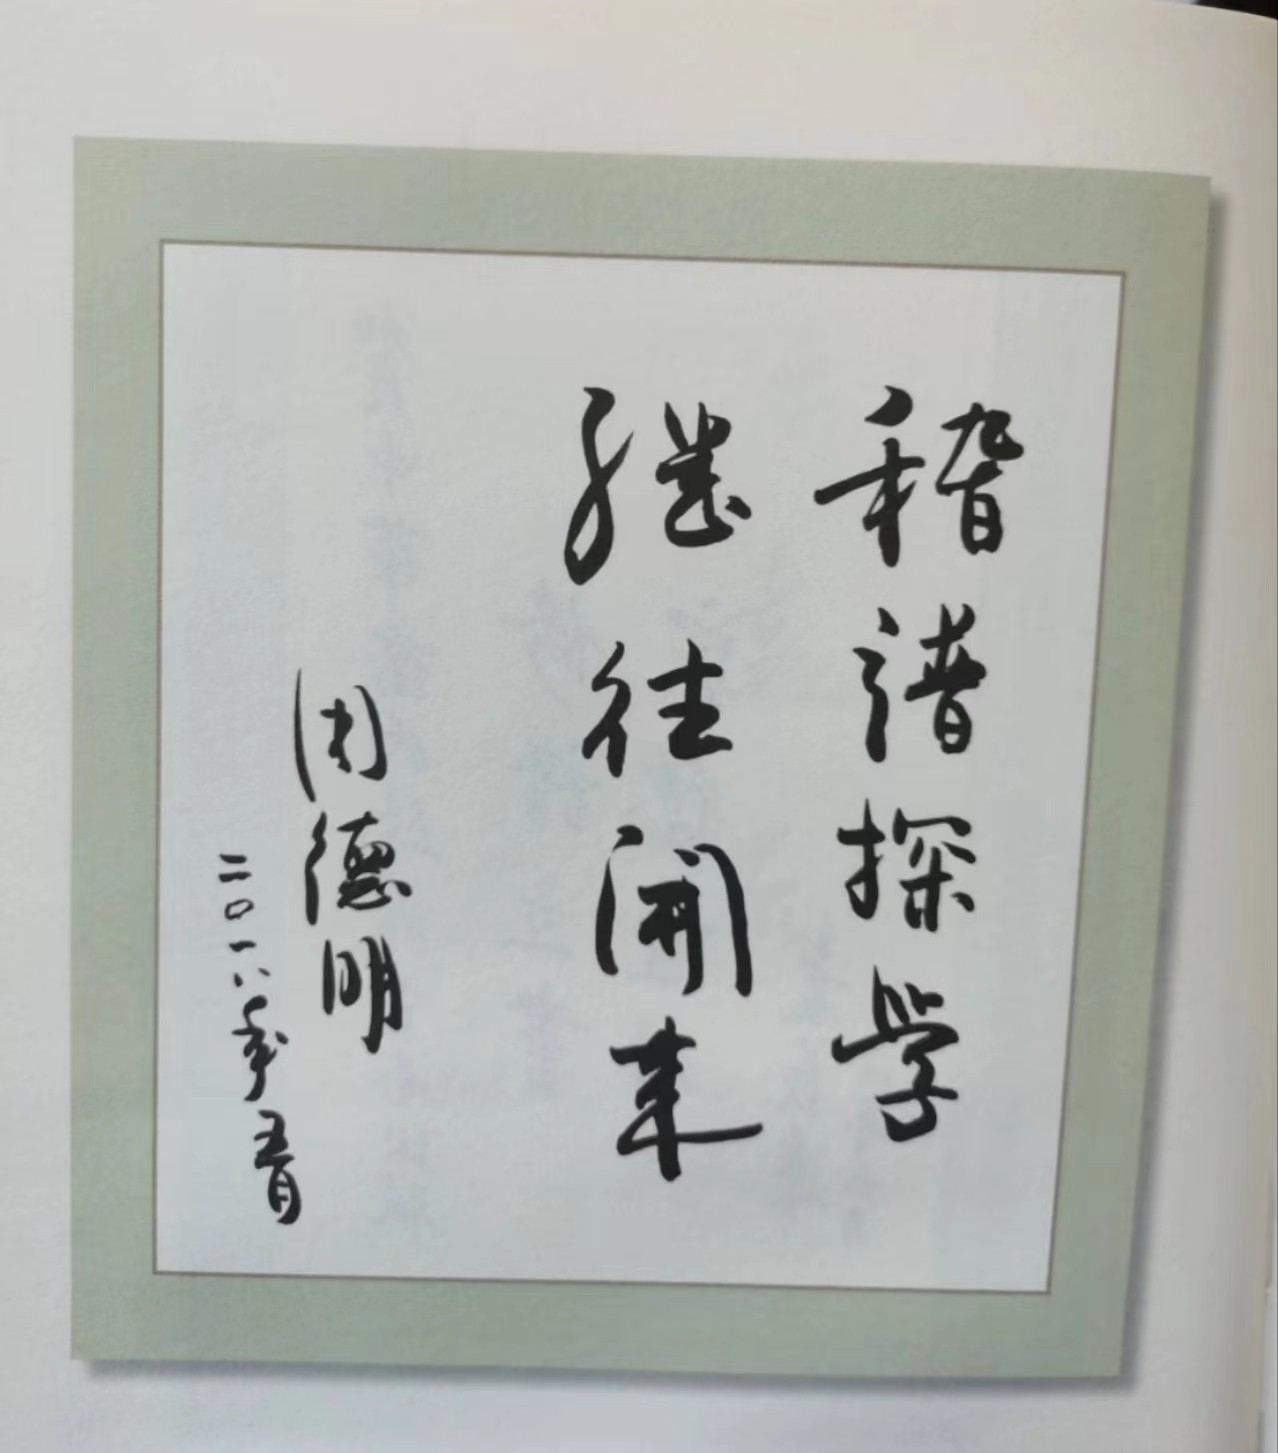 稽谱探学
继往開来
周德明
二〇一八年五月